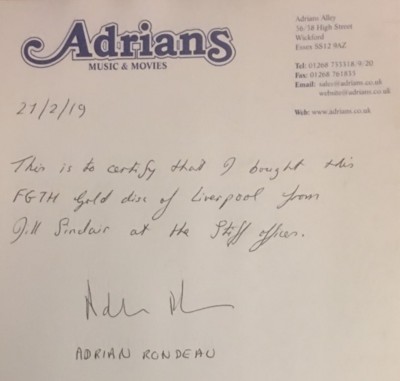 Adrians
MUSIC & MOVIES
Adrians Alley
36/38 High Street
Wickford
Essex SS12 9AZ
Tel: 01268 733318/9/20
Fax: 01268 761835
Email: sales@adrians.co.uk
website@adrians.co.uk
Web: www.adrians.co.uk
21/2/19
This is to certify that I bought this
FGTH Gold disc of Liverpool from
Jill Sinclair at the Stiff offices.
ADRIAN RONDEAU